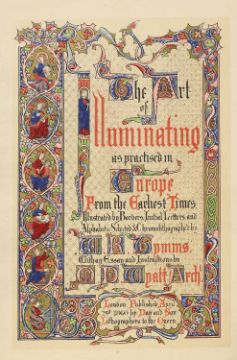 The Art
of
Illuminating
as practised in
Europe
From the Earliest Times
Illustrated by Borders, Initial Letters and
Alphabets Selected & Chromolithographed by
W. R. Tymms,
With an Essay and Instructions by
M. D. Wyatt, Arch.
London Published April
2nd 1860 by Day and Son
Lithographers to the Queen